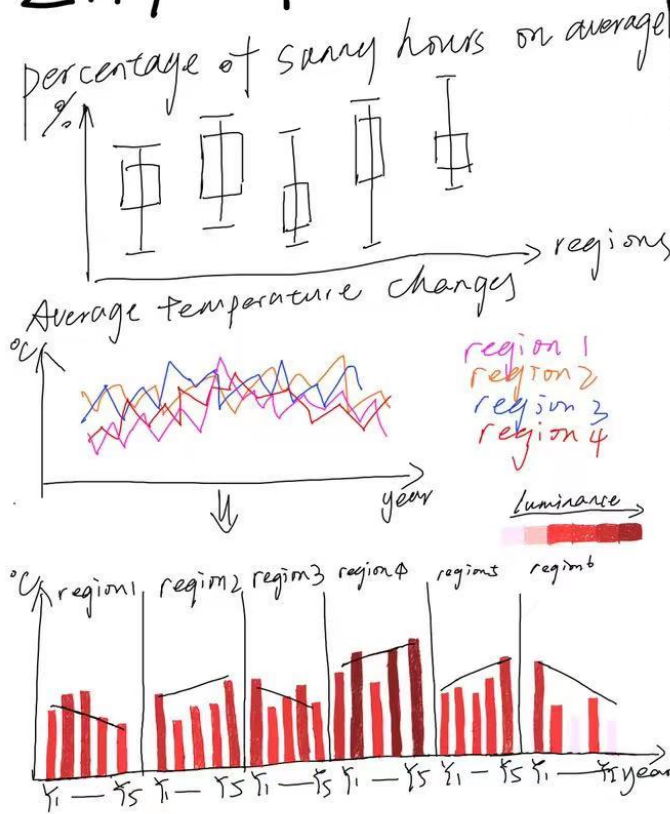 percentage of sunny hours on average
%
regions
Average temperature changes
°C
region 1
region 2
region 3
region 4
year
luminance
°C region1 region2 region3 region4 region5 region6
Y1 — Y5 Y1 — Y5 Y1 — Y5 Y1 — Y5 Y1 — Y5 Y1 — Y5 year